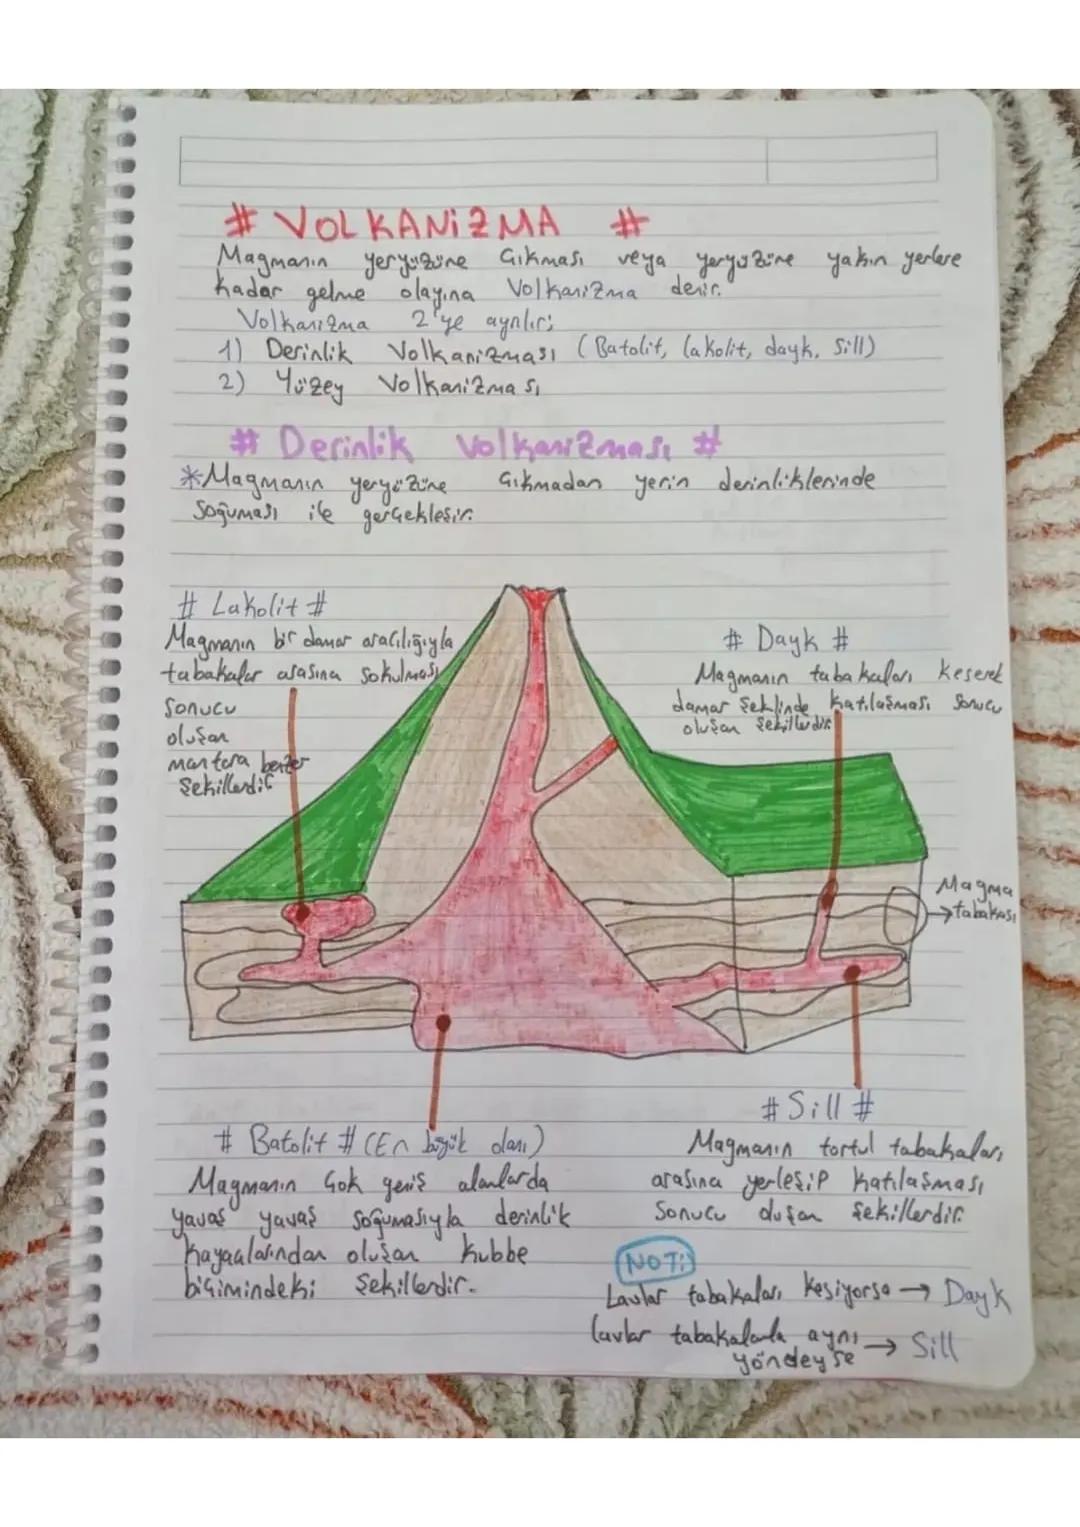 # VOLKANİZMA #
Magmanın yeryüzüne Çıkması veya yeryüzüne yakın yerlere
kadar gelme olayına Volkanizma denir.
Volkanizma 2'ye ayrılır;
1) Derinlik Volkanizması (Batolit, Lakolit, dayk, Sill)
2) Yüzey Volkanizması
# Derinlik Volkanizması #
*Magmanın yeryüzüne Çıkmadan yerin derinliklerinde
Soğuması ile gerçekleşir.
# Lakolit #
Magmanın bir damar aracılığıyla
tabakalar arasına sokulması
Sonucu
oluşan
mantara benzer
Şekillerdir
# Dayk #
Magmanın tabakaları keserek
damar Şeklinde katılaşması Sonucu
oluşan Şekillerdir.
Magma
tabakası
# Batolit # (En büyük olanı)
Magmanın Çok geniş alanlarda
yavaş yavaş Soğumasıyla derinlik
kayaalarından oluşan kubbe
biçimindeki Şekillerdir.
# Sill #
Magmanın tortul tabakaları
arasına yerleşip katılaşması
Sonucu oluşan Şekillerdir.
NOT:
Lavlar tabakaları Kesiyorsa → Dayk
Lavlar tabakalarla aynı → Sill
yöndeyse